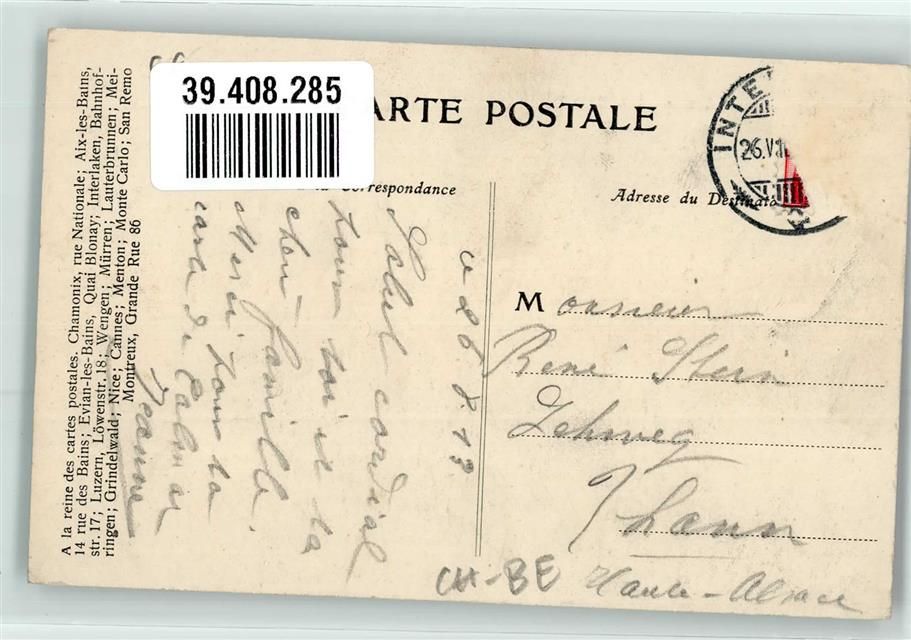 39.408.285
ARTE POSTALE
Correspondance
Adresse du Destinata
INTE
26.VII
A la reine des cartes postales. Chamonix, rue Nationale; Aix-les-Bains,
14 rue des Bains; Evian-les-Bains, Quai Blonay; Interlaken, Bahnhof-
str. 17; Luzern, Löwenstr. 18; Wengen; Mürren; Lauterbrunnen; Mei-
ringen; Grindelwald; Nice; Cannes; Menton; Monte Carlo; San Remo
Montreux, Grande Rue 86
26.8.13
Salut cordial
pour toi et ta
chère famille.
Merci pour ta
carte de Colmar
Jeanne
Monsieur
René Stein
Zehweg
Thann
Haute-Alsace
CH-BE